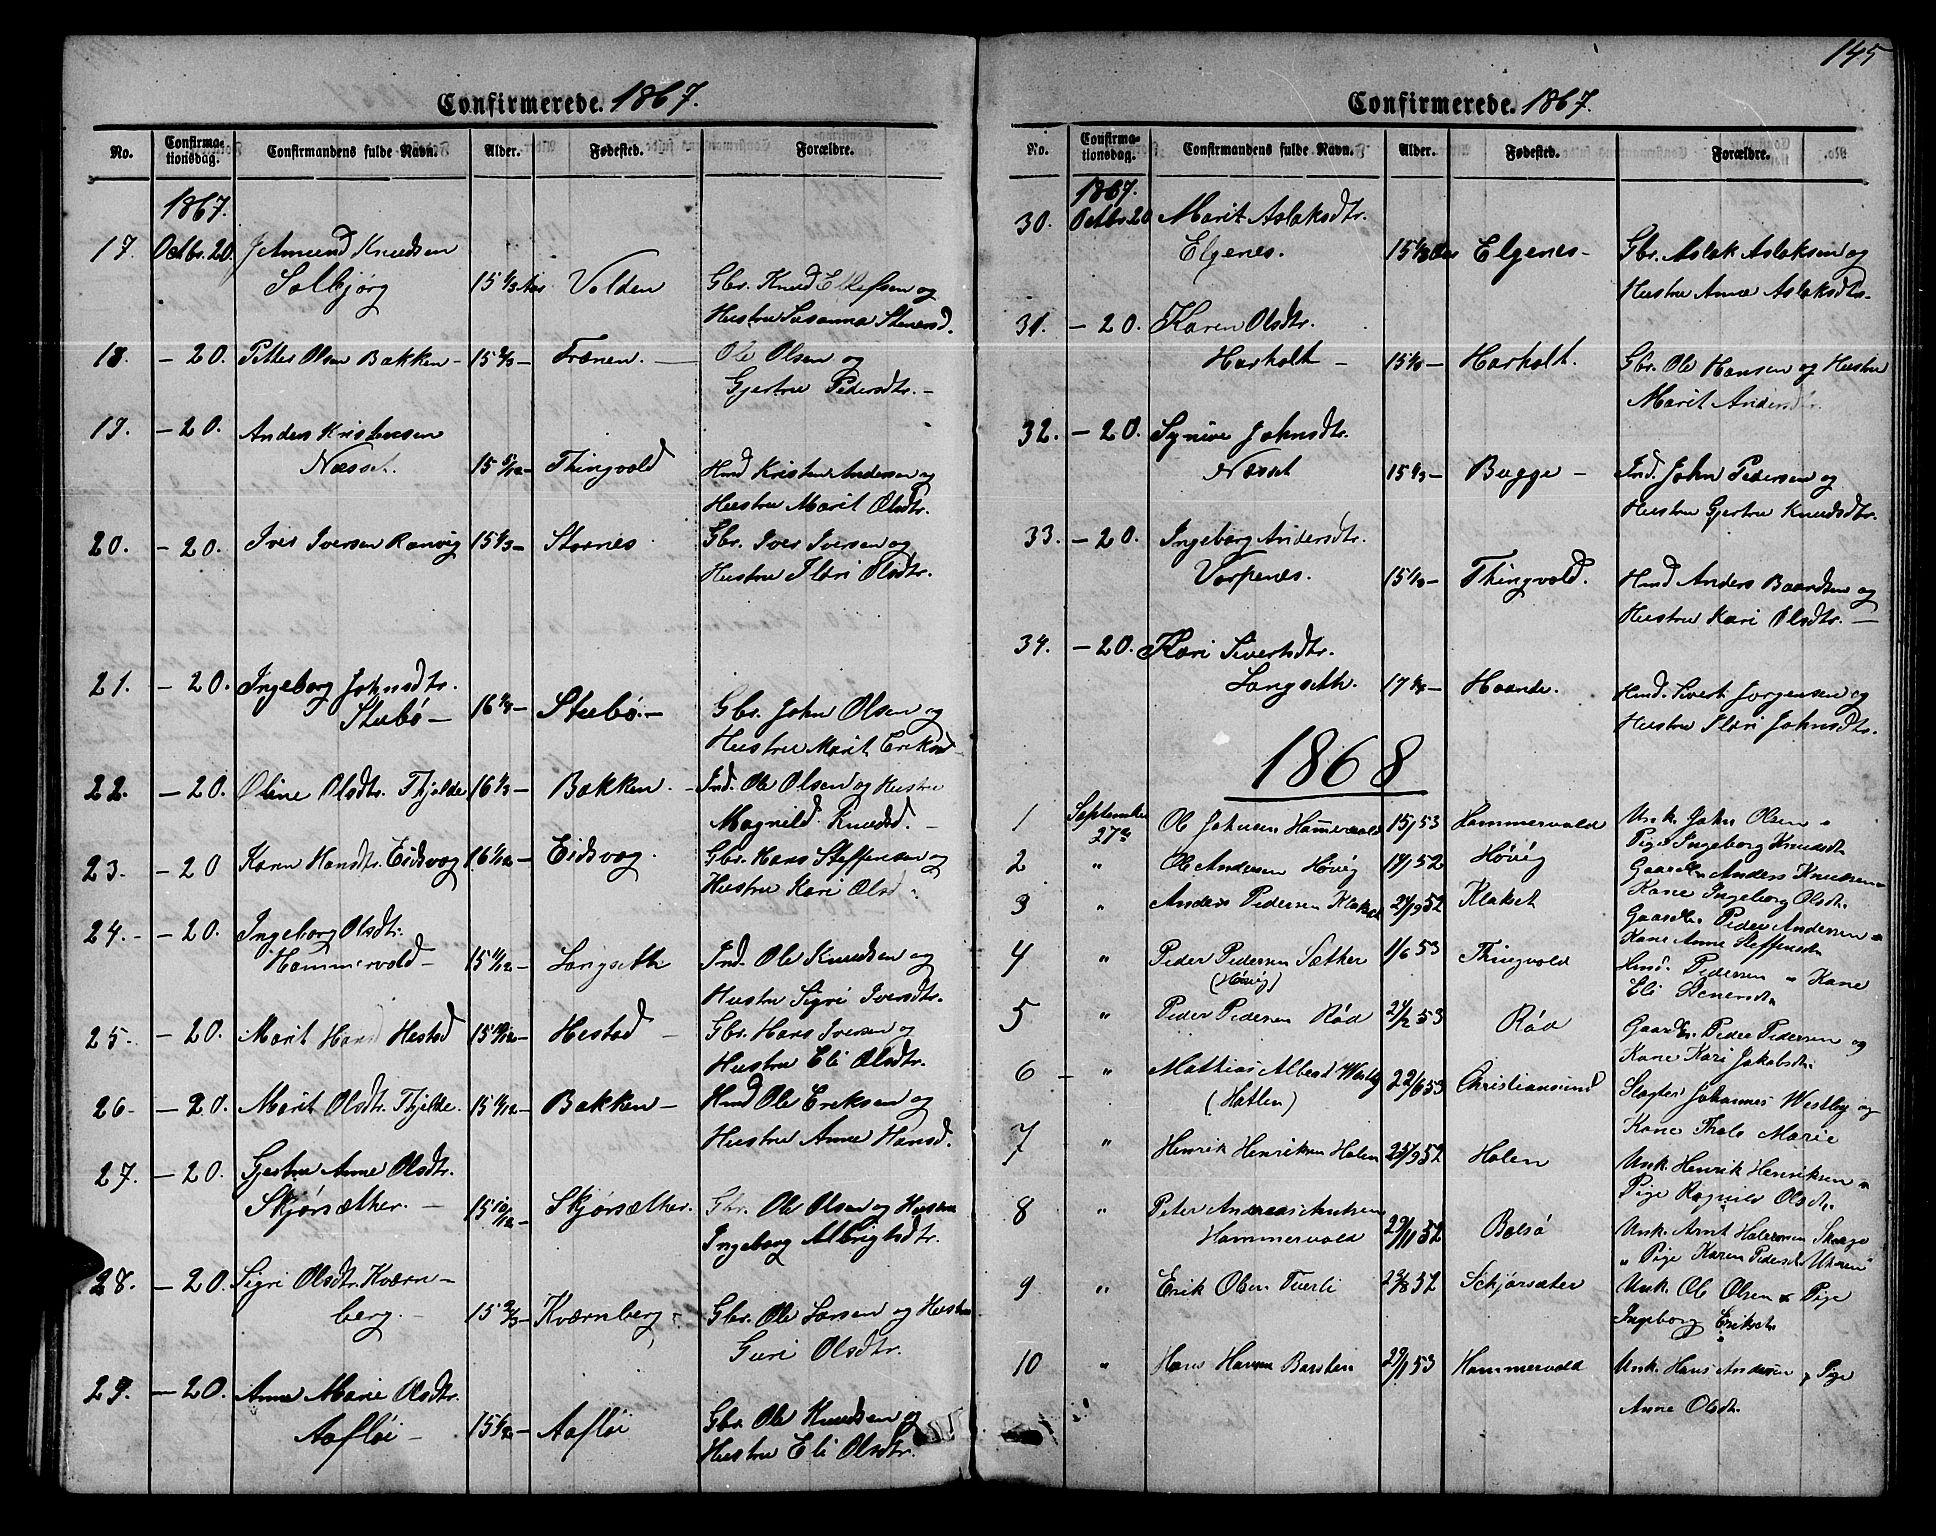 Confirmerede. 1867.
No. Confirmationsdag. Confirmandens fulde Navn. Alder. Fødested. Forældre.
1867.
17. Octbr. 20. Amund Knudsen
Solbjørg 15 1/3 Aar Volden Gbr. Knud og
Hustru Susanna Stenersd.
18. - 20. Petter Olsen Bakken - 15 2/3 - Frænen. - Ole Olsen og
Gjertru Pedersdtr. -
19. - 20. Anders Kristensen
Næsset. 15 5/12 - Thingvold Hmd Kristen Andersen og
Hustru Marit Olsdtr.
20. - 20. Iver Iversen Ranvig 15 1/3 - Stornes Gbr. Iver Iversen og
Hustru Kari Olsdtr.
21. - 20. Ingeborg Johnsdtr.
Stubø - 16 1/3 - Stubø. - Gbr. John Olsen og
Hustru Marit Eriksd
22. - 20. Oline Olsdtr. Thjelde 16 1/3 - Bakken. - Ind. Ole Olsen og Hustru
Magnild Knudsd. -
23. - 20 Karen Hansdtr. Eidsvog 16 1/12 - Eidsvog. Gbr. Hans Steffensen og
Hustru Kari Olsd.
24. - 20. Ingeborg Olsdtr.
Hammervold - 15 11/12 - Langseth Ind. Ole Knudsen og
Hustru Sigri Iversdtr.
25. - 20. Marit Hansd Hestad 15 10/12 - Hestad - Gbr. Hans Iversen og
Hustru Eli Olsdtr.
26. - 20. Marit Olsdtr. Thjelde. 15 11/12 - Bakken - Hmd Ole Eriksen og
Hustru Anne Hansd.
27. - 20. Gjertru Anne Olsdtr.
Skjørsæther. - 15 10/12 - Skjørsæther. Gbr. Ole Olsen og Hustru
Ingeborg Albrigtsdtr.
28. - 20. Sigri Olsdtr. Kværn-
berg. - 15 2/3 - Kværnberg - Gbr. Ole Larsen og Hustru
Guri Olsdtr.
29. - 20. Anne Marie Olsdtr.
Aafløi - 15 1/2 - Aafløi Gbr. Ole Knudsen og
Hustru Eli Olsdtr.
145
Confirmerede. 1867.
No. Confirmationsdag. Confirmandens fulde Navn. Alder. Fødested. Forældre.
1867.
30. Octbr. 20 Marit Aslaksdtr.
Elgenes. 15 1/3 Aar Elgenes - Gbr. Aslak Aslaksen og
Hustru Anne Aslaksdtr.
31. - 20. Karen Olsdtr.
Harholt - 15 - Harholt. Gbr. Ole Hansen og Hustru
Marit Andersdtr.
32. - 20. Synive Johnsdtr.
Næsset 15 1/3 - Bugge - Ind. John Pedersen og
Hustru Gjertru Knudsdtr.
33. - 20. Ingeborg Andersdtr.
Vorpenes. 15 1/3 - Thingvold. Hmd Anders Baardsen og
Hustru Kari Olsdtr. -
34. - 20. Kari Sivertsdtr.
Langseth. 17 - Haande. Hmd. Sivert Jørgensen og
Hustru Kari Johnsdtr.
1868
1 September 27de Ole Johnsen Hammervold 15/1 53 Hammervold Unk. John Olsen "
Pige Ingeborg Knudsdt.
2 " Ole Andersen Høvig 19/1 52 Høvig Gaardbr. Anders Knudsen "
Kane Ingeborg Olsdt.
3 " Anders Pedersen Klaket 21/9 52 Klaket Gaardbr. Peder Andersen "
Kane Anne Steffensdt
4 " Peder Pedersen Sæther 1/6 53 Thingvold Hmd. Pedersen " Kane
(Høvig) Eli Stenersdt
5 " Peder Pedersen Rød 24/2 53 Rød Gaardbr. Peder Pedersen og
Kane Kari Jakobsdt.
6 - " Mathias Albert Westby 22/6 53 Christiansund Slagter Johannes Westby og
(Hatlen) Kane Thale Marie
7 " Henrik Henriksen Holen 25/9 52 Holen Unk. Henrik Henriksen "
Pige Ragnild Olsdt.
8 " Peter Andreas Arntsen
Hammervold 29/11 52 Bolsø Unk. Arnt Halvorsen Skage
" Pige Karen Pedersdt
9 " Erik Olsen Tverli 23/8 52 Schjørsæter Unk. Ole Olsen & Pige
Ingeborg Eriksdt.
10 " Hans Hansen Barsten 29/1 53 Hammervold Unk. Hans Andersen, Pige
Anne Olsdt.